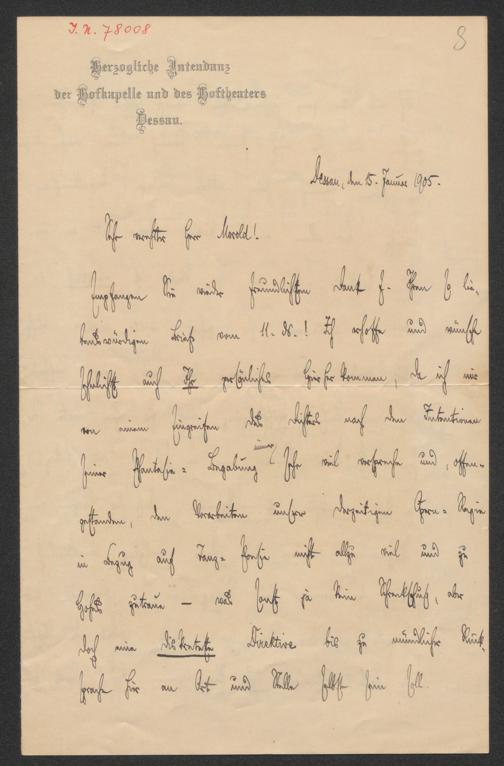 I.N. 78008
8
Herzogliche Intendanz
der Hofkapelle und des Hoftheaters
Dessau.
Dessau, den 15. Januar 1905.
Sehr verehrter Herr Morold!
Empfangen Sie wieder freundlichsten Dank f. Ihren so lie-
benswürdigen Brief vom 11. ds.! Ich erhoffe und wünsche
sehnlichst auch Ihr persönliches Hierherkommen, da ich mir
von einem Eingreifen des Dichters nach den Intentionen
seiner Phantasie-Begabung immer sehr viel verspreche und, offen-
gestanden, den Vorarbeiten unserer derzeitigen Opern-Regie
in Bezug auf Tanz-Poesie nicht allzu viel und zu
Hohes zutraue — was sonst ja kein, aber
doch eine diskreteste Direktive bis zu mündlicher Rück-
sprache hier an Ort und Stelle selbst sein soll.